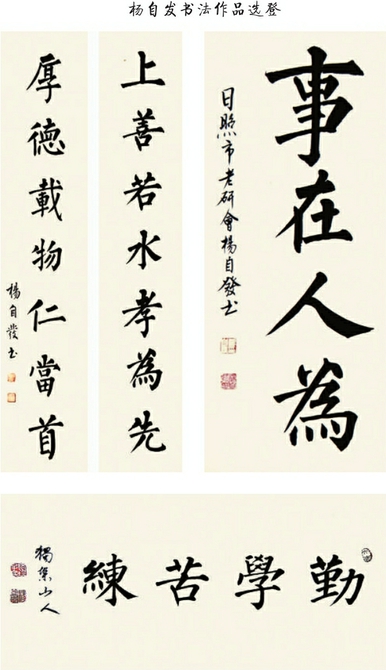 杨自发书法作品选登
事在人為
日照市老研會楊自發书
上善若水孝為先
厚德載物仁當首
楊自發书
勤學苦練
獨集山人